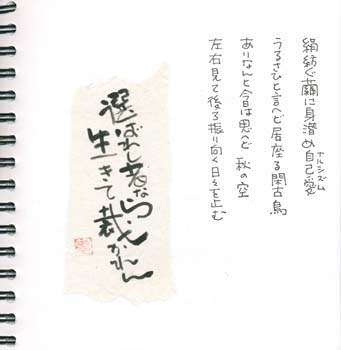 絹紡ぐ繭に身潜め自己愛
ナルシズム
うるさひと言へど居座る閑古鳥
ありなんと今日は思へど 秋の空
左右見て後ろ振り向く日々を止む
選ばれし者ならん
生きて裁かれん